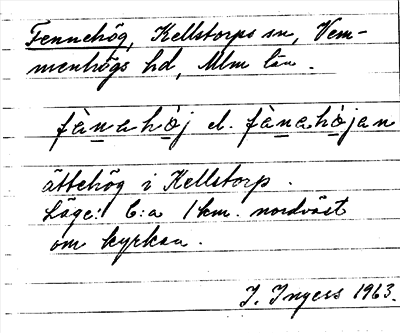 Fennehög, Kellstorps sn, Vem-
menhögs hd, Mlm län.
fànahöj el. fànahöjan
ättehög i Kellstorp.
Läge: C:a 1 km. nordväst
om kyrkan.
I. Ingers 1963.